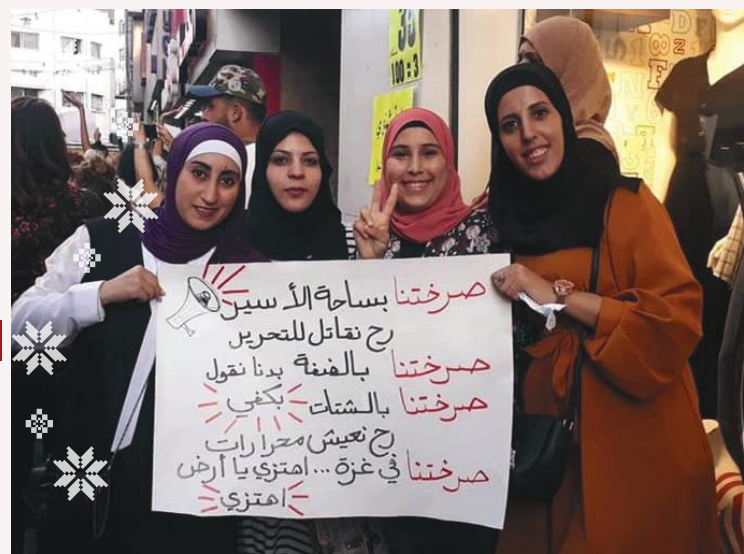 صرختنا بساحة الأسير
رح نقاتل للتحرير
صرختنا بالضفة بدنا نقول
صرختنا بالشتات بكفي
رح نعيش محرارات
صرختنا في غزة ... اهتزي يا أرض
اهتزي
35
100 : 3